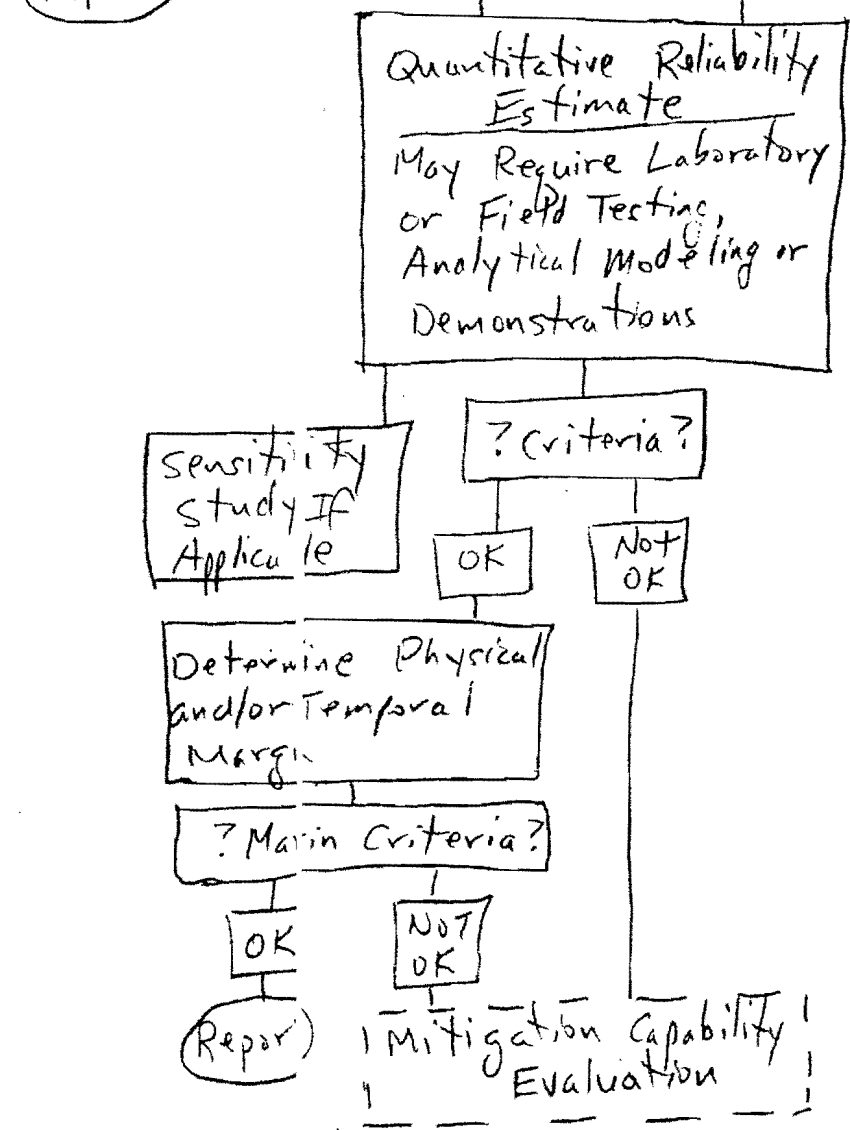 Quantitative Reliability
Estimate
May Require Laboratory
or Field Testing,
Analytical Modeling or
Demonstrations
? Criteria?
Sensiti ity
Study If
Applica le
OK
Not
OK
Determine Physical
and/or Temporal
Margi
? Mar in Criteria?
OK
NOT
OK
Repor
Mitigation Capability
Evaluation